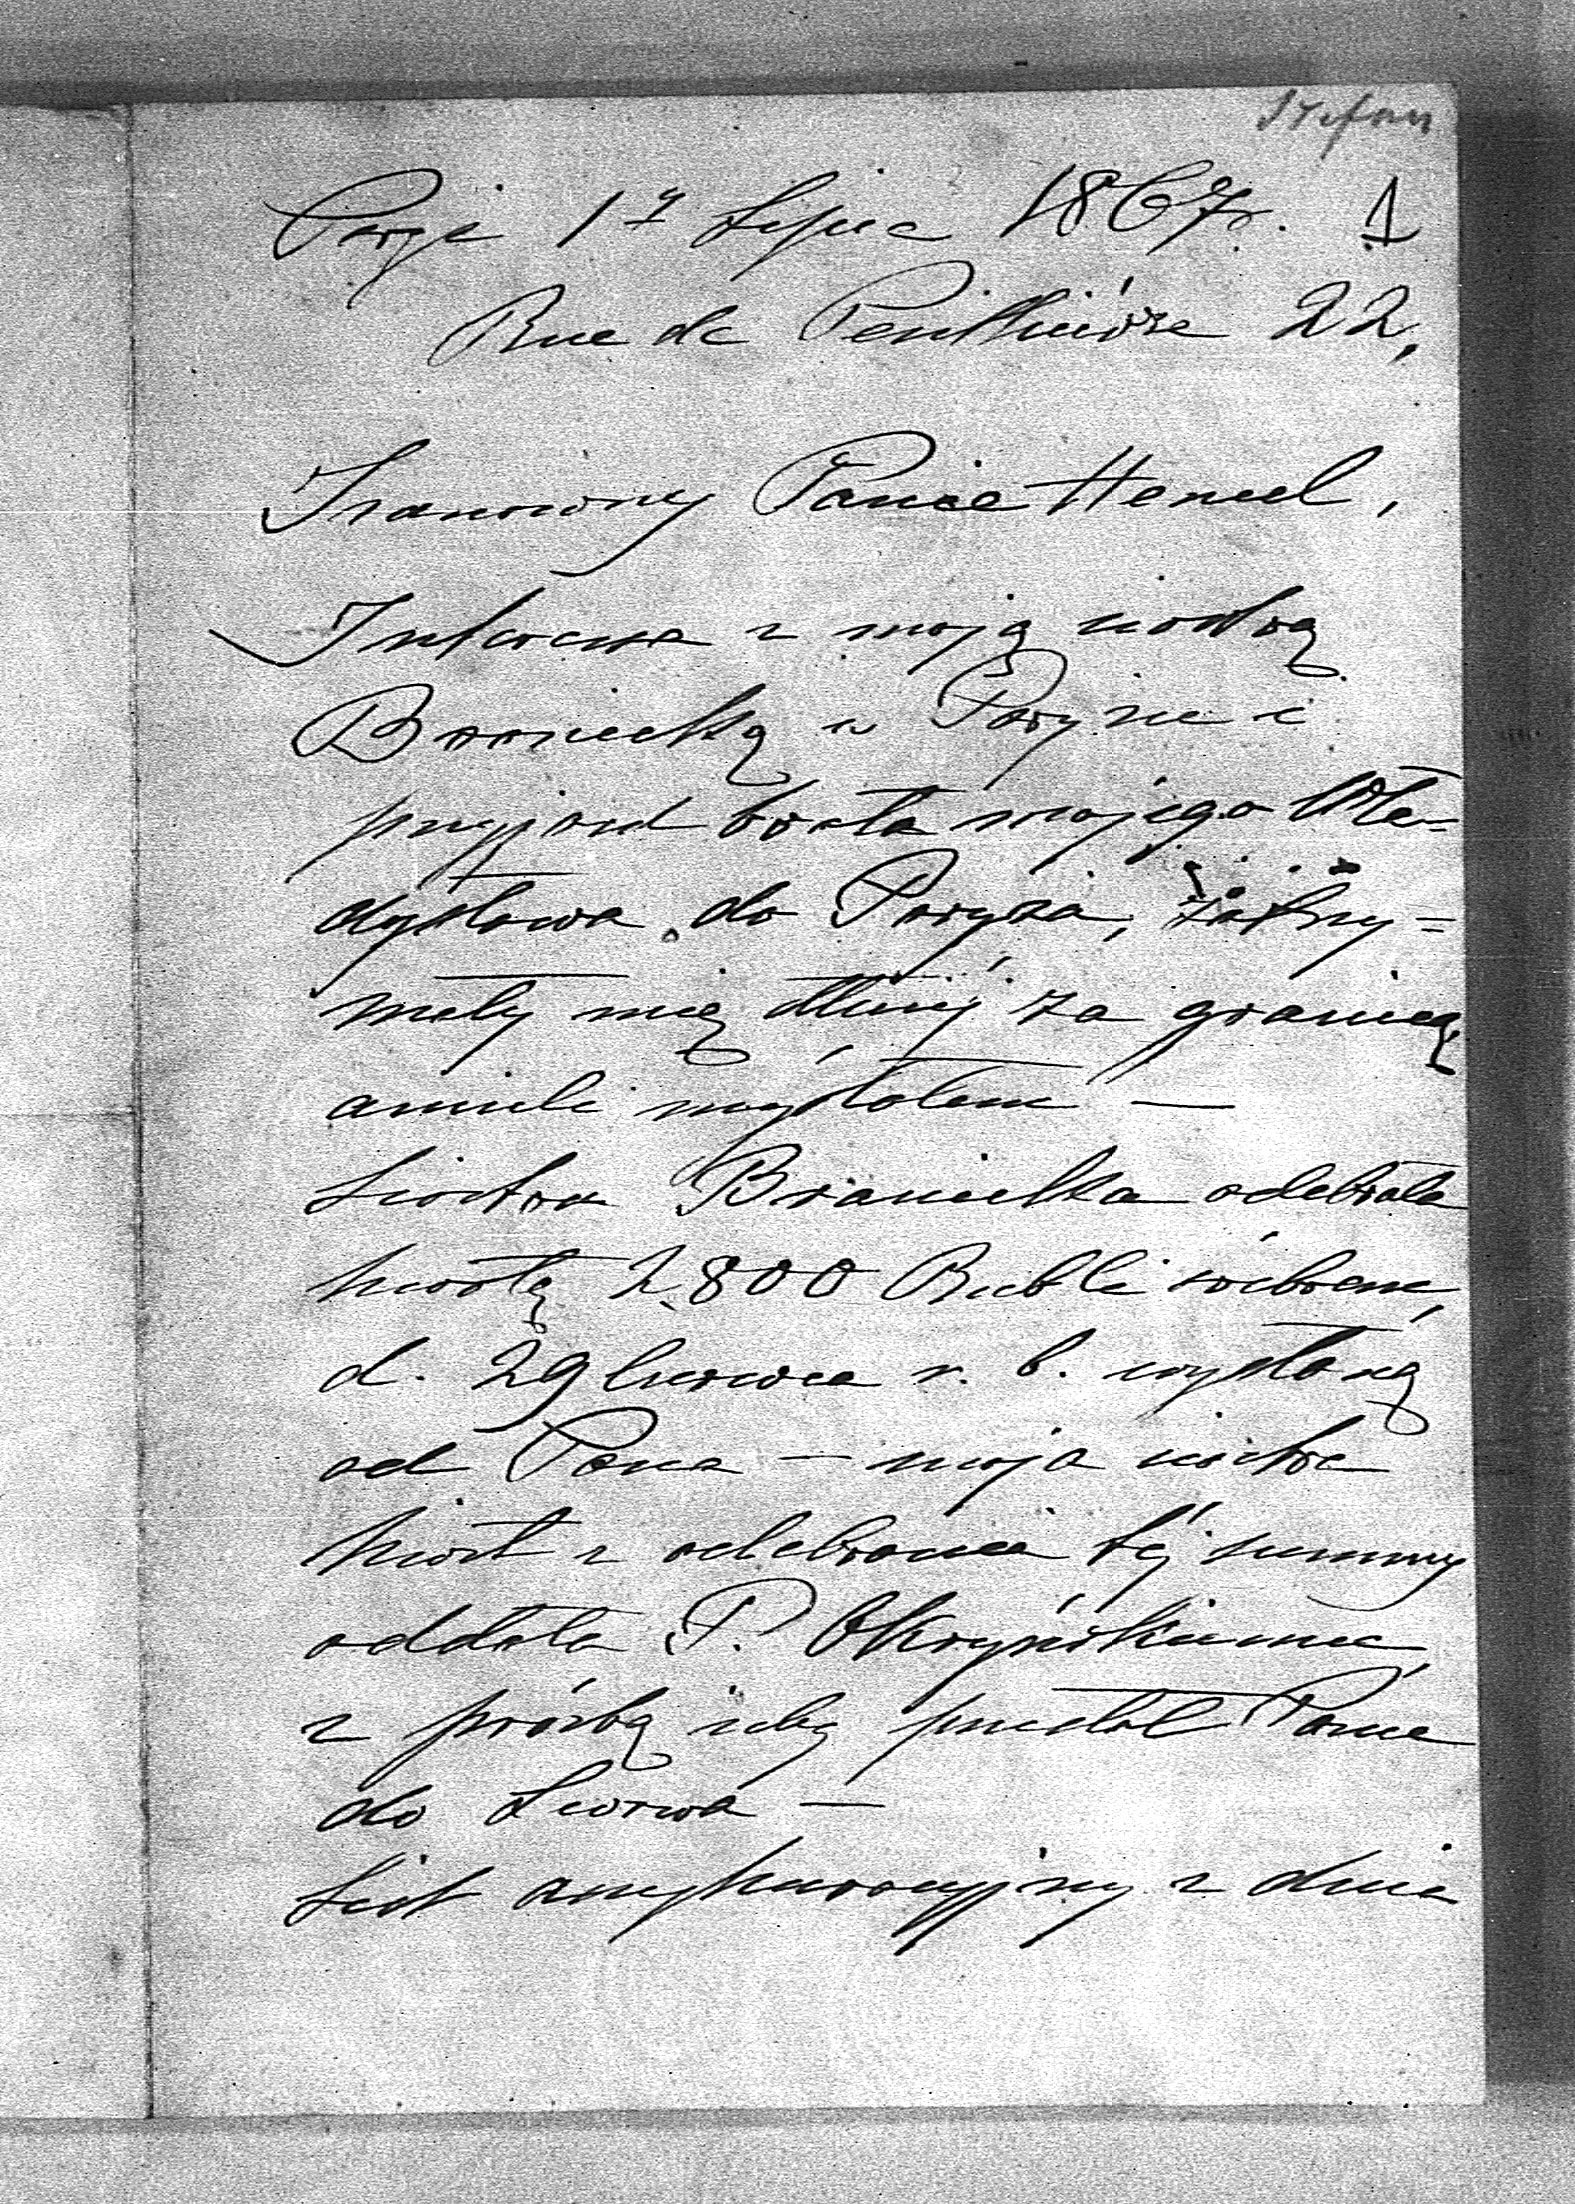 Stefan
Paryż 1º Lipca 1867 r. 1
Rue de Penthièvre 22,
Szanowny Panie Hensel,
Interessa z moją siostrą
Branicką w Paryżu i
przyjazd brata mojego Wła-
dysława do Paryża, zatrzy=
mały mię dłużéj za granicą
aniżeli myślałem —
Siostra Branicka odebrała
kwotę 2800 Rubli srebrem,
d. 29 Czerwca r. b. wysłaną
od Pana — moja siostra
kwit z odebrania téj summy
oddała P. Okryńskiemu,
z prośbą żeby przesłał Panu
do Lwowa —
List assykuracyjny z dnia